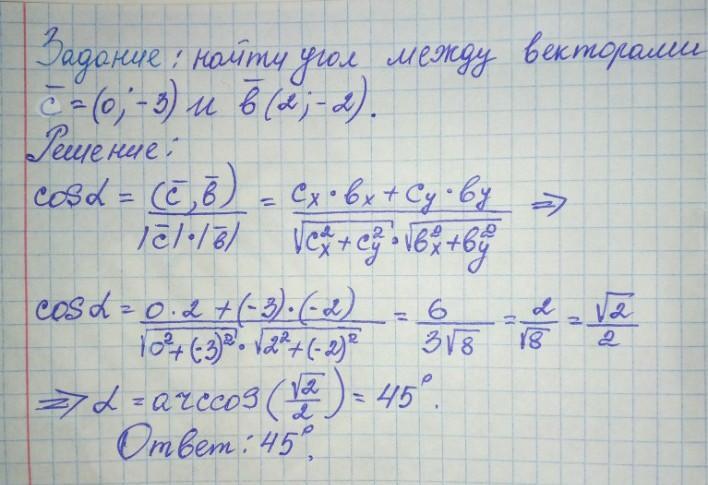 Задание: найти угол между векторами
c̅ = (0; -3) и b̅ (2; -2).
Решение:
cos α = (c̅, b̅) / |c̅|·|b̅| = (cx·bx + cy·by) / (√(cx² + cy²)·√(bx² + by²)) ⇒
cos α = (0·2 + (-3)·(-2)) / (√(0² + (-3)²)·√(2² + (-2)²)) = 6 / 3√8 = 2 / √8 = √2 / 2
⇒ α = arccos (√2 / 2) = 45°.
Ответ: 45°.